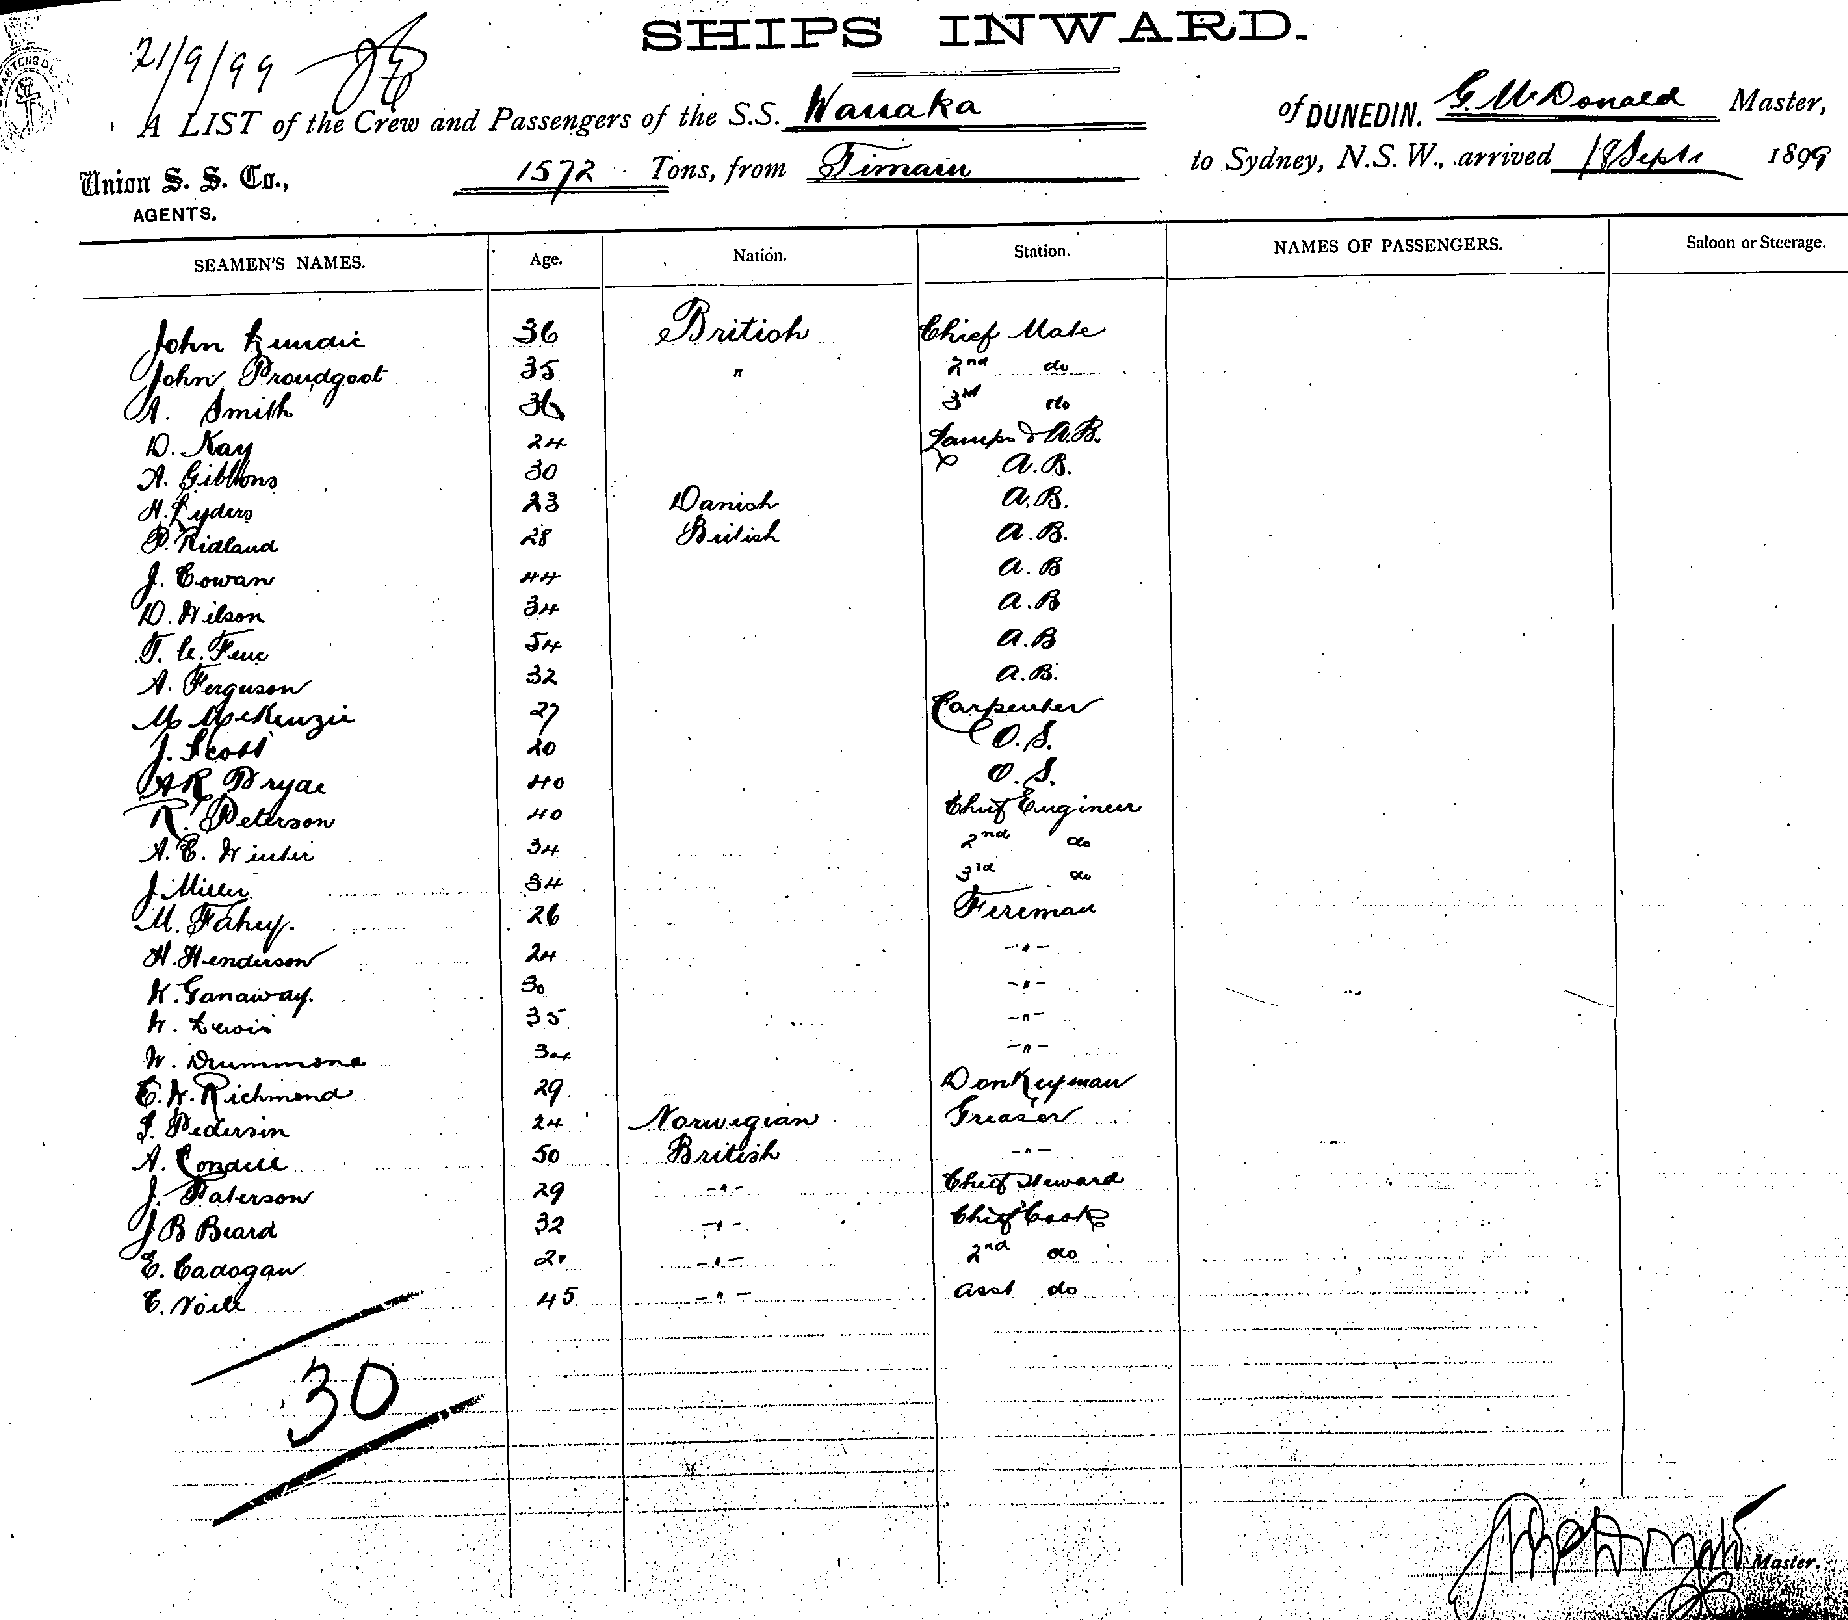 SHIPS INWARD.
21/9/99
A LIST of the Crew and Passengers of the S.S. Wanaka of DUNEDIN. G. McDonald Master,
Union S. S. Co., 1572 Tons, from Timaru to Sydney, N.S.W., arrived 18 Septr 1899
AGENTS.
SEAMEN'S NAMES. Age. Nation. Station. NAMES OF PASSENGERS. Saloon or Steerage.
John 36 British Chief Mate
John Proudgoot 35 " 2nd do
A. Smith 36 3rd do
D. Kay 24 Lamps & A.B.
A. Gibbons 30 A.B.
H. Lyders 23 Danish A.B.
P. Ridland 28 British A.B.
J. Cowan 44 A.B
D. Wilson 34 A.B
T. le. 54 A.B
A. Ferguson 32 A.B.
M McKenzie 27 Carpenter
J. Scott 20 O.S.
AR Pryde 40 O.S.
R. Peterson 40 Chief Engineer
A. E. Winter 34 2nd do
J Miller 34 3rd do
M. Fahey. 26 Fireman
H. Henderson 24 -"-
W. Ganaway. 30 -"-
W. Lewis 35 -"-
W. Drummond 34 -"-
E. W. Richmond 29 Donkeyman
Pedersen 24 Norwegian Greaser
A. Condell 50 British -"-
J. Paterson 29 -"- Chief Steward
J B Beard 32 -"- Chief Cook
E. Cadogan 21 -"- 2nd do
E. 45 -"- asst do
30
Master.